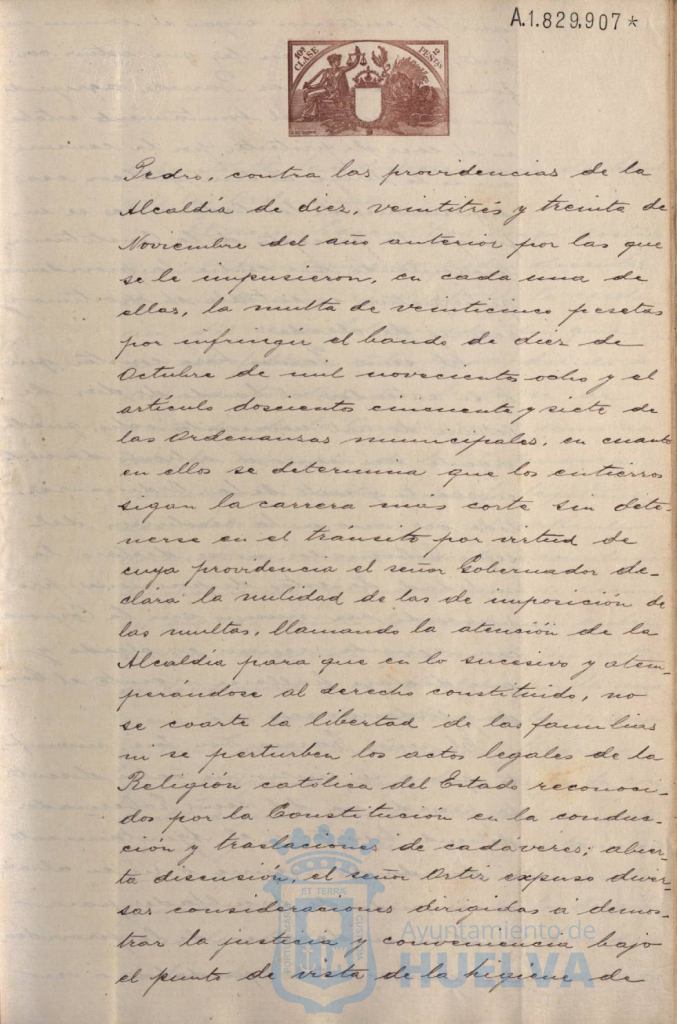 A.1.829.907*
10ª CLASE
2 PESETAS
Pedro, contra las providencias de la
Alcaldía de diez, veintitrés y treinta de
Noviembre del año anterior por las que
se le impusieron, en cada una de
ellas, la multa de veinticinco pesetas
por infringir el bando de diez de
Octubre de mil novecientos ocho y el
artículo doscientos cincuenta y siete de
las Ordenanzas municipales, en cuanto
en ellos se determina que los entierros
sigan la carrera mas corta sin dete-
nerse en el tránsito por virtud de
cuya providencia el señor Gobernador de-
clara la nulidad de las de imposición de
las multas, llamando la atención de la
Alcaldía para que en lo sucesivo y atem-
perándose al derecho constituido, no
se coarte la libertad de las familias
ni se perturben los actos legales de la
Religión católica del Estado reconoci-
dos por la Constitución en la conduc-
ción y traslaciones de cadáveres; abier-
ta discusión, el señor Ortiz expuso diver-
sas consideraciones dirigidas á demos-
trar la justicia y conveniencia bajo
el punto de vista de la higiene de
Ayuntamiento de
HUELVA